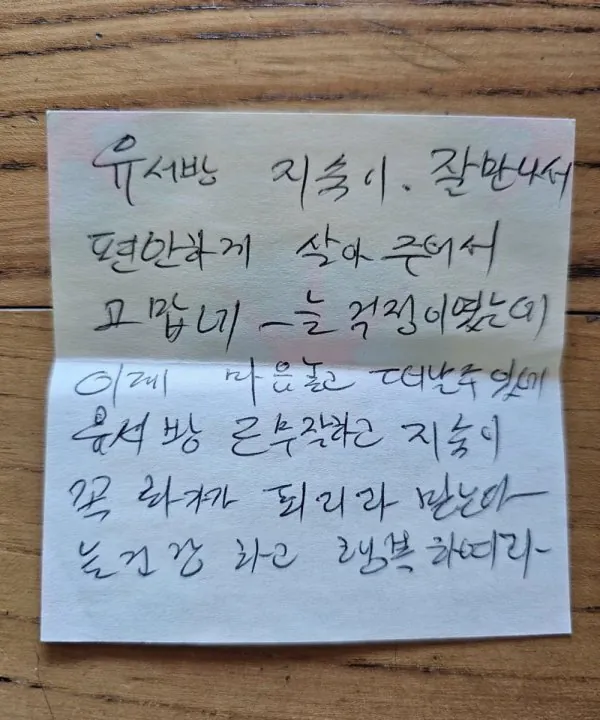 유서방 지숙이. 잘만나서
편안하게 살아 주어서
고맙네 늘 걱정이였는데
이제 마음놓고 떠날수있게
유서방 근무잘하고 지숙이
꼭 되리라 믿는다
늘건강 하고 행복하여라